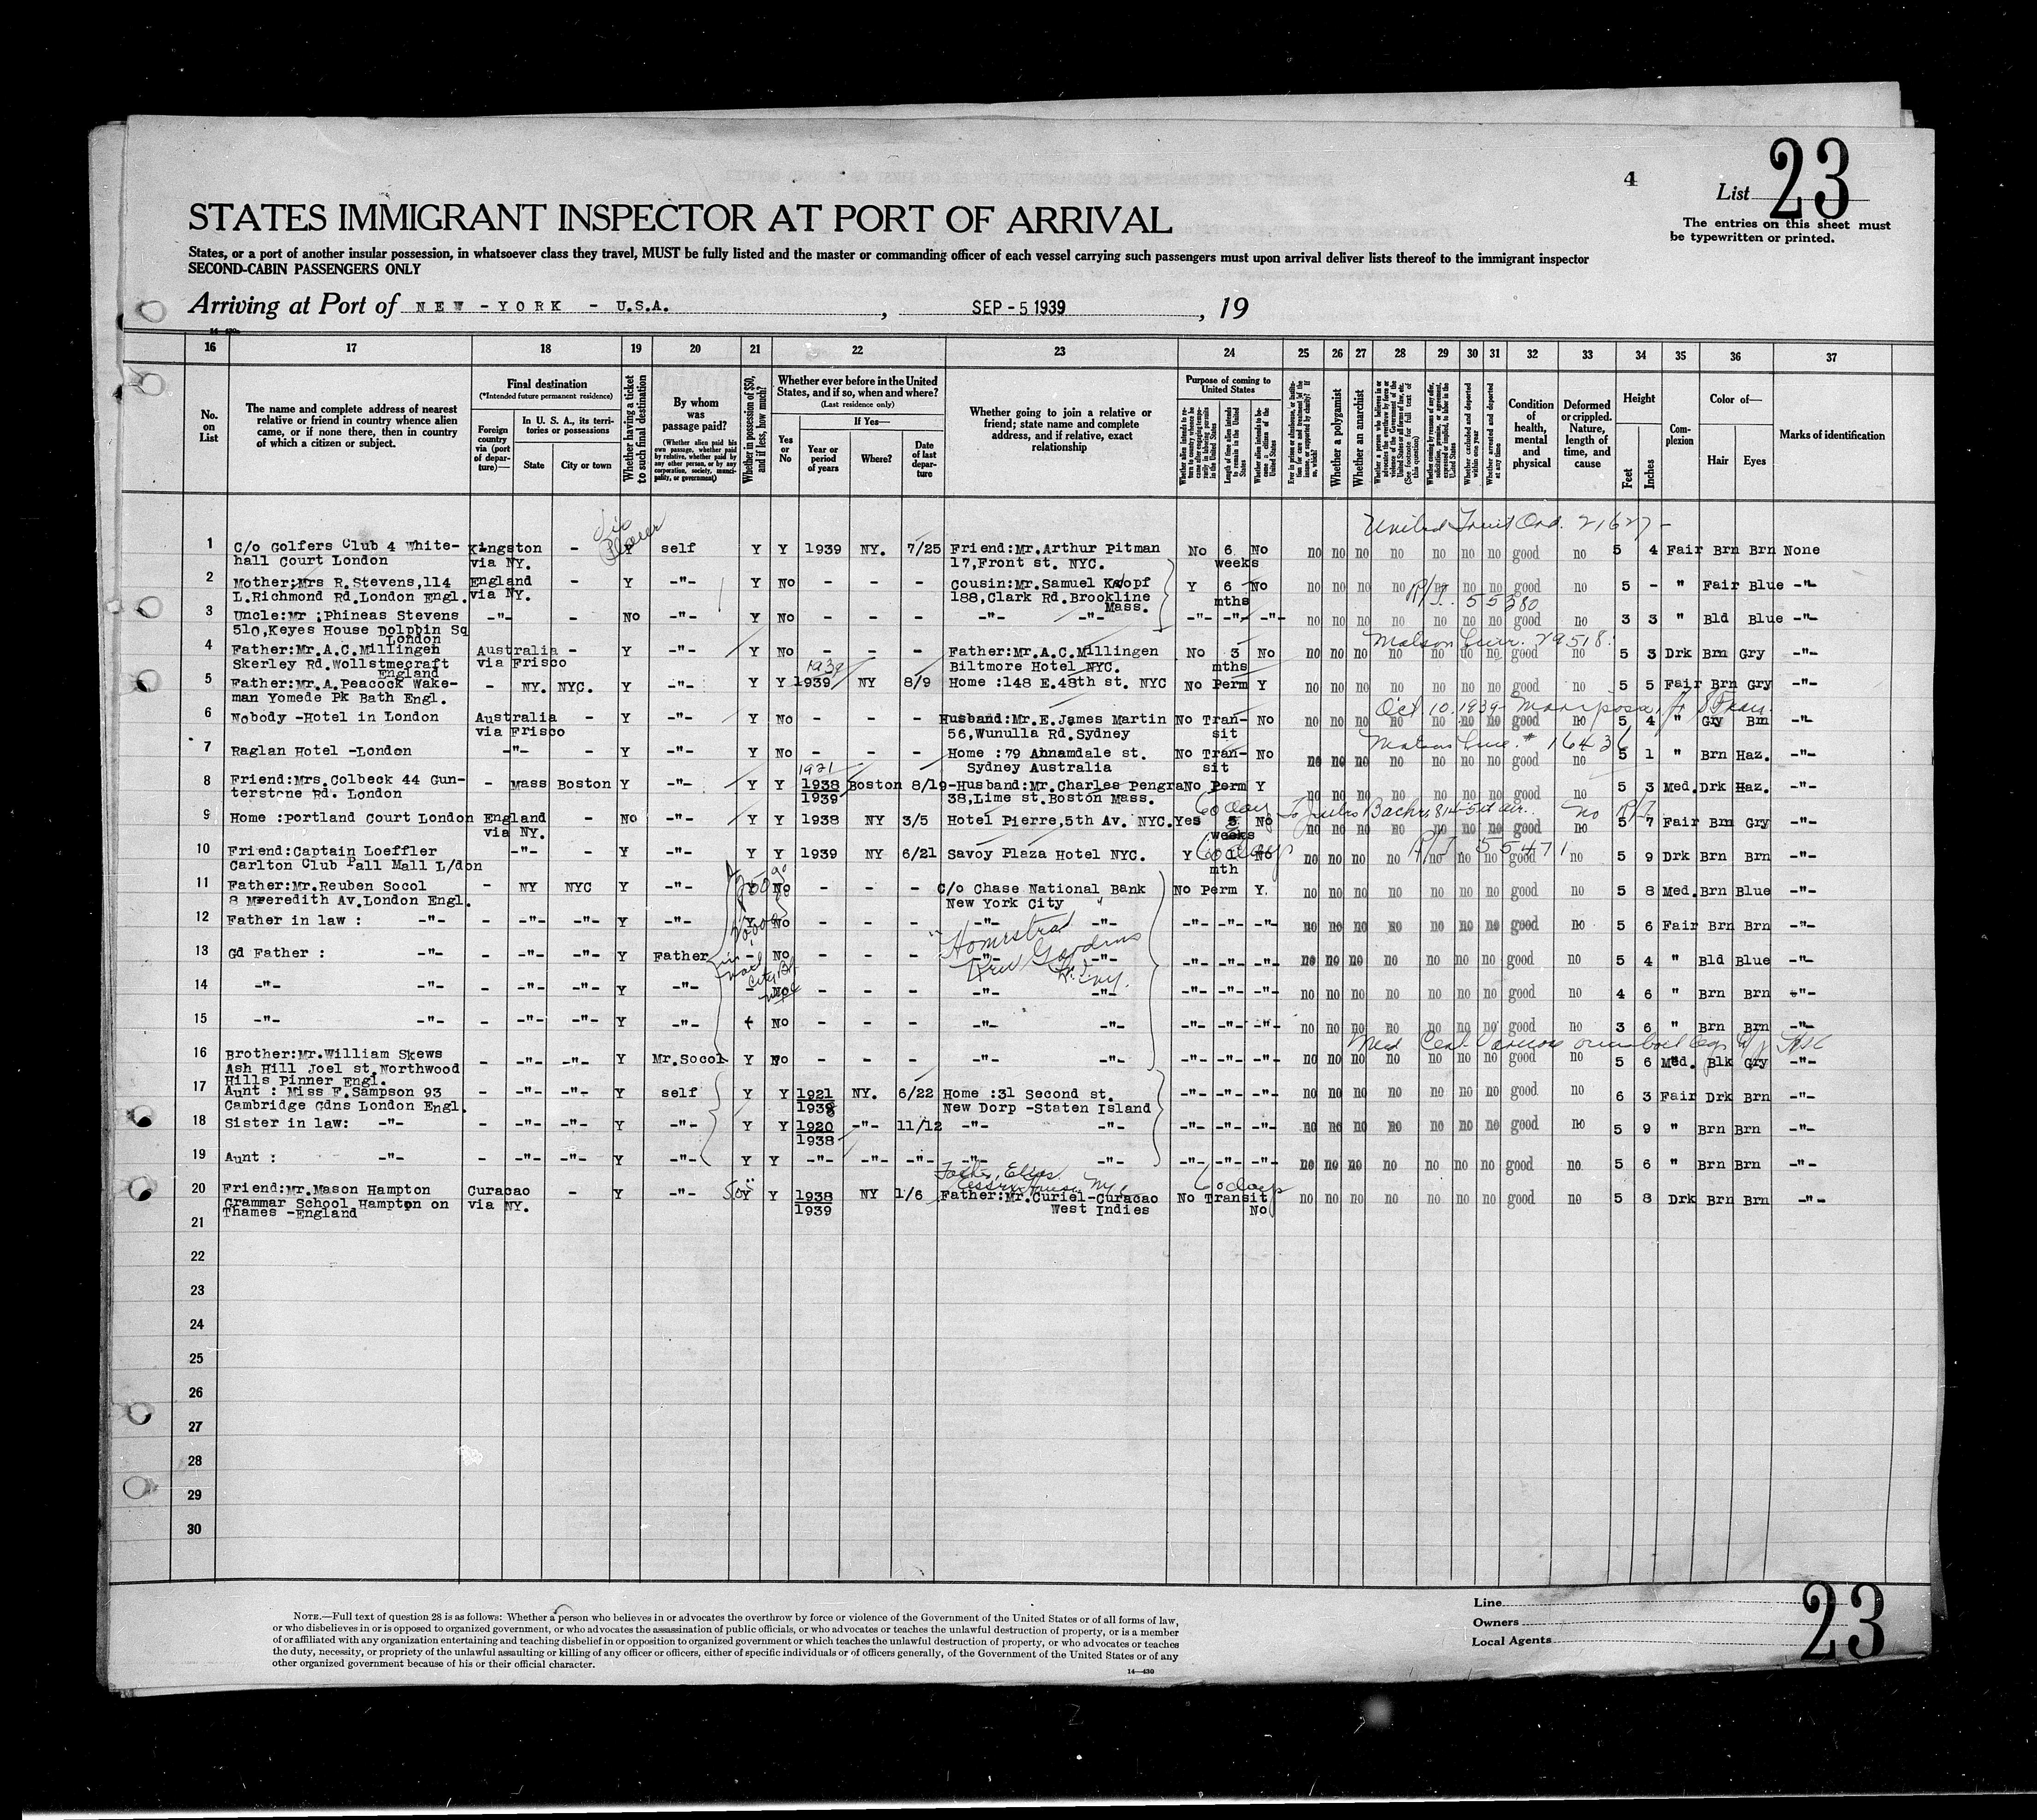 4
List 23
The entries on this sheet must
be typewritten or printed.
STATES IMMIGRANT INSPECTOR AT PORT OF ARRIVAL
States, or a port of another insular possession, in whatsoever class they travel, MUST be fully listed and the master or commanding officer of each vessel carrying such passengers must upon arrival deliver lists thereof to the immigrant inspector
SECOND-CABIN PASSENGERS ONLY
Arriving at Port of NEW - YORK - U.S.A. , SEP - 5 1939 , 19
16 17 18 19 20 21 22 23 24 25 26 27 28 29 30 31 32 33 34 35 36 37
No. on List
The name and complete address of nearest relative or friend in country whence alien came, or if none there, then in country of which a citizen or subject.
Final destination
(*Intended future permanent residence)
Foreign country via (port of departure)—
In U. S. A., its territories or possessions
State City or town
Whether having a ticket to such final destination
By whom was passage paid?
(Whether alien paid his own passage, whether paid by relative, whether paid by any other person, or by any corporation, society, municipality, or government)
Whether in possession of $50, and if less, how much?
Whether ever before in the United States, and if so, when and where?
(Last residence only)
Yes or No
If Yes—
Year or period of years Where? Date of last departure
Whether going to join a relative or friend; state name and complete address, and if relative, exact relationship
Purpose of coming to United States
Whether a polygamist
Whether an anarchist
Condition of health, mental and physical
Deformed or crippled. Nature, length of time, and cause
Height
Feet Inches
Complexion
Color of—
Hair Eyes
Marks of identification
United Fruit Ord. 21627-
1 C/o Golfers Club 4 White- Kingston - Y self Y Y 1939 NY. 7/25 Friend:Mr.Arthur Pitman No 6 No no no no no no no no good no 5 4 Fair Brn Brn None
hall Court London via NY. 17,Front st. NYC. weeks
2 Mother:Mrs R.Stevens,114 England - Y -"- Y No - - - Cousin:Mr.Samuel Knopf Y 6 No no no no no no no no good no 5 - " Fair Blue -"-
L.Richmond Rd.London Engl. via NY. 188,Clark Rd.Brookline mths
Mass.
R/T. 55380
3 Uncle:Mr :Phineas Stevens -"- - No -"- Y No - - - -"- -"- -"- -"- -"- no no no no no no no good no 3 3 " Bld Blue -"-
510,Keyes House Dolphin Sq
London
4 Father:Mr.A.C.Millingen Australia - Y -"- Y No - - - Father:Mr.A.C.Millingen No 3 No no no no no no no no good no 5 3 Drk Brn Gry -"-
Skerley Rd.Wollstmecraft via Frisco Biltmore Hotel NYC. mths
England
5 Father:Mr.A.Peacock Wake- - NY. NYC. Y -"- Y Y 1939 NY 8/9 Home :148 E.48th st. NYC No Perm Y no no no no no no no good no 5 5 Fair Brn Gry -"-
man Yomede Pk Bath Engl.
Oct 10.1939- Mariposa
6 Nobody -Hotel in London Australia - Y -"- Y No - - - Husband:Mr.E.James Martin No Tran- No no no no no no no no good no 5 4 " Gry Brn -"-
via Frisco 56,Wunulla Rd.Sydney sit
7 Raglan Hotel -London -"- - Y -"- Y No - - - Home :79 Annamdale st. No Tran- No no no no no no no no good no 5 1 " Brn Haz. -"-
Sydney Australia sit
8 Friend:Mrs.Colbeck 44 Gun- - Mass Boston Y -"- Y Y 1938 Boston 8/19-Husband:Mr.Charles Pengra No Perm Y no no no no no no no good no 5 3 Med. Drk Haz. -"-
terstone Rd. London 1939 38,Lime st.Boston Mass.
9 Home :Portland Court London England - No -"- Y Y 1938 NY 3/5 Hotel Pierre,5th Av. NYC. Yes 3 No no no no no no no no good no 5 7 Fair Brn Gry -"-
via NY. weeks
10 Friend:Captain Loeffler -"- - Y -"- Y Y 1939 NY 6/21 Savoy Plaza Hotel NYC. Y 1 No no no no no no no no good no 5 9 Drk Brn Brn -"-
Carlton Club Pall Mall L/don mth
11 Father:Mr.Reuben Socol - NY NYC Y -"- Y No - - - C/o Chase National Bank No Perm Y. no no no no no no no good no 5 8 Med. Brn Blue -"-
8 Meredith Av.London Engl. New York City
12 Father in law : -"- - -"- -"- Y -"- Y No - - - -"- -"- -"- -"- -"- no no no no no no no good no 5 6 Fair Brn Brn -"-
13 Gd Father : -"- - -"- -"- Y Father - No - - - -"- -"- -"- -"- -"- no no no no no no no good no 5 4 " Bld Blue -"-
Homestead
Kew Gardens
14 -"- -"- - -"- -"- Y -"- - No - - - -"- -"- -"- -"- -"- no no no no no no no good no 4 6 " Brn Brn -"-
15 -"- -"- - -"- -"- Y -"- No - - - -"- -"- -"- -"- -"- no no no no no no no good no 3 6 " Brn Brn -"-
16 Brother:Mr.William Skews - -"- -"- Y Mr.Socol Y No - - - -"- -"- -"- -"- -"- no no no no no no no good no 5 6 Med. Blk Gry -"-
Ash Hill Joel st.Northwood
Hills Pinner Engl.
17 Aunt : Miss F.Sampson 93 - -"- -"- Y self Y Y 1921 NY. 6/22 Home :31 Second st. -"- -"- -"- no no no no no no no good no 6 3 Fair Drk Brn -"-
Cambridge Gdns London Engl. 1938 New Dorp -Staten Island
18 Sister in law: -"- - -"- -"- Y -"- Y Y 1920 -"- 11/12 -"- -"- -"- -"- -"- no no no no no no no good no 5 9 " Brn Brn -"-
1938
19 Aunt : -"- - -"- -"- Y -"- Y Y -"- -"- -"- -"- -"- -"- -"- -"- no no no no no no no good no 5 6 " Brn Brn -"-
20 Friend:Mr.Mason Hampton Curacao - Y -"- Y Y 1938 NY 1/6 Father:Mr.Curiel-Curacao No Transit no no no no no no no good no 5 8 Drk Brn Brn -"-
Grammar School Hampton on via NY. 1939 West Indies No
Thames -England
21
22
23
24
25
26
27
28
29
30
NOTE.—Full text of question 28 is as follows: Whether a person who believes in or advocates the overthrow by force or violence of the Government of the United States or of all forms of law,
or who disbelieves in or is opposed to organized government, or who advocates the assassination of public officials, or who advocates or teaches the unlawful destruction of property, or is a member
of or affiliated with any organization entertaining and teaching disbelief in or opposition to organized government or which teaches the unlawful destruction of property, or who advocates or teaches
the duty, necessity, or propriety of the unlawful assaulting or killing of any officer or officers, either of specific individuals or of officers generally, of the Government of the United States or of any
other organized government because of his or their official character.
14—430
Line
Owners
Local Agents
23